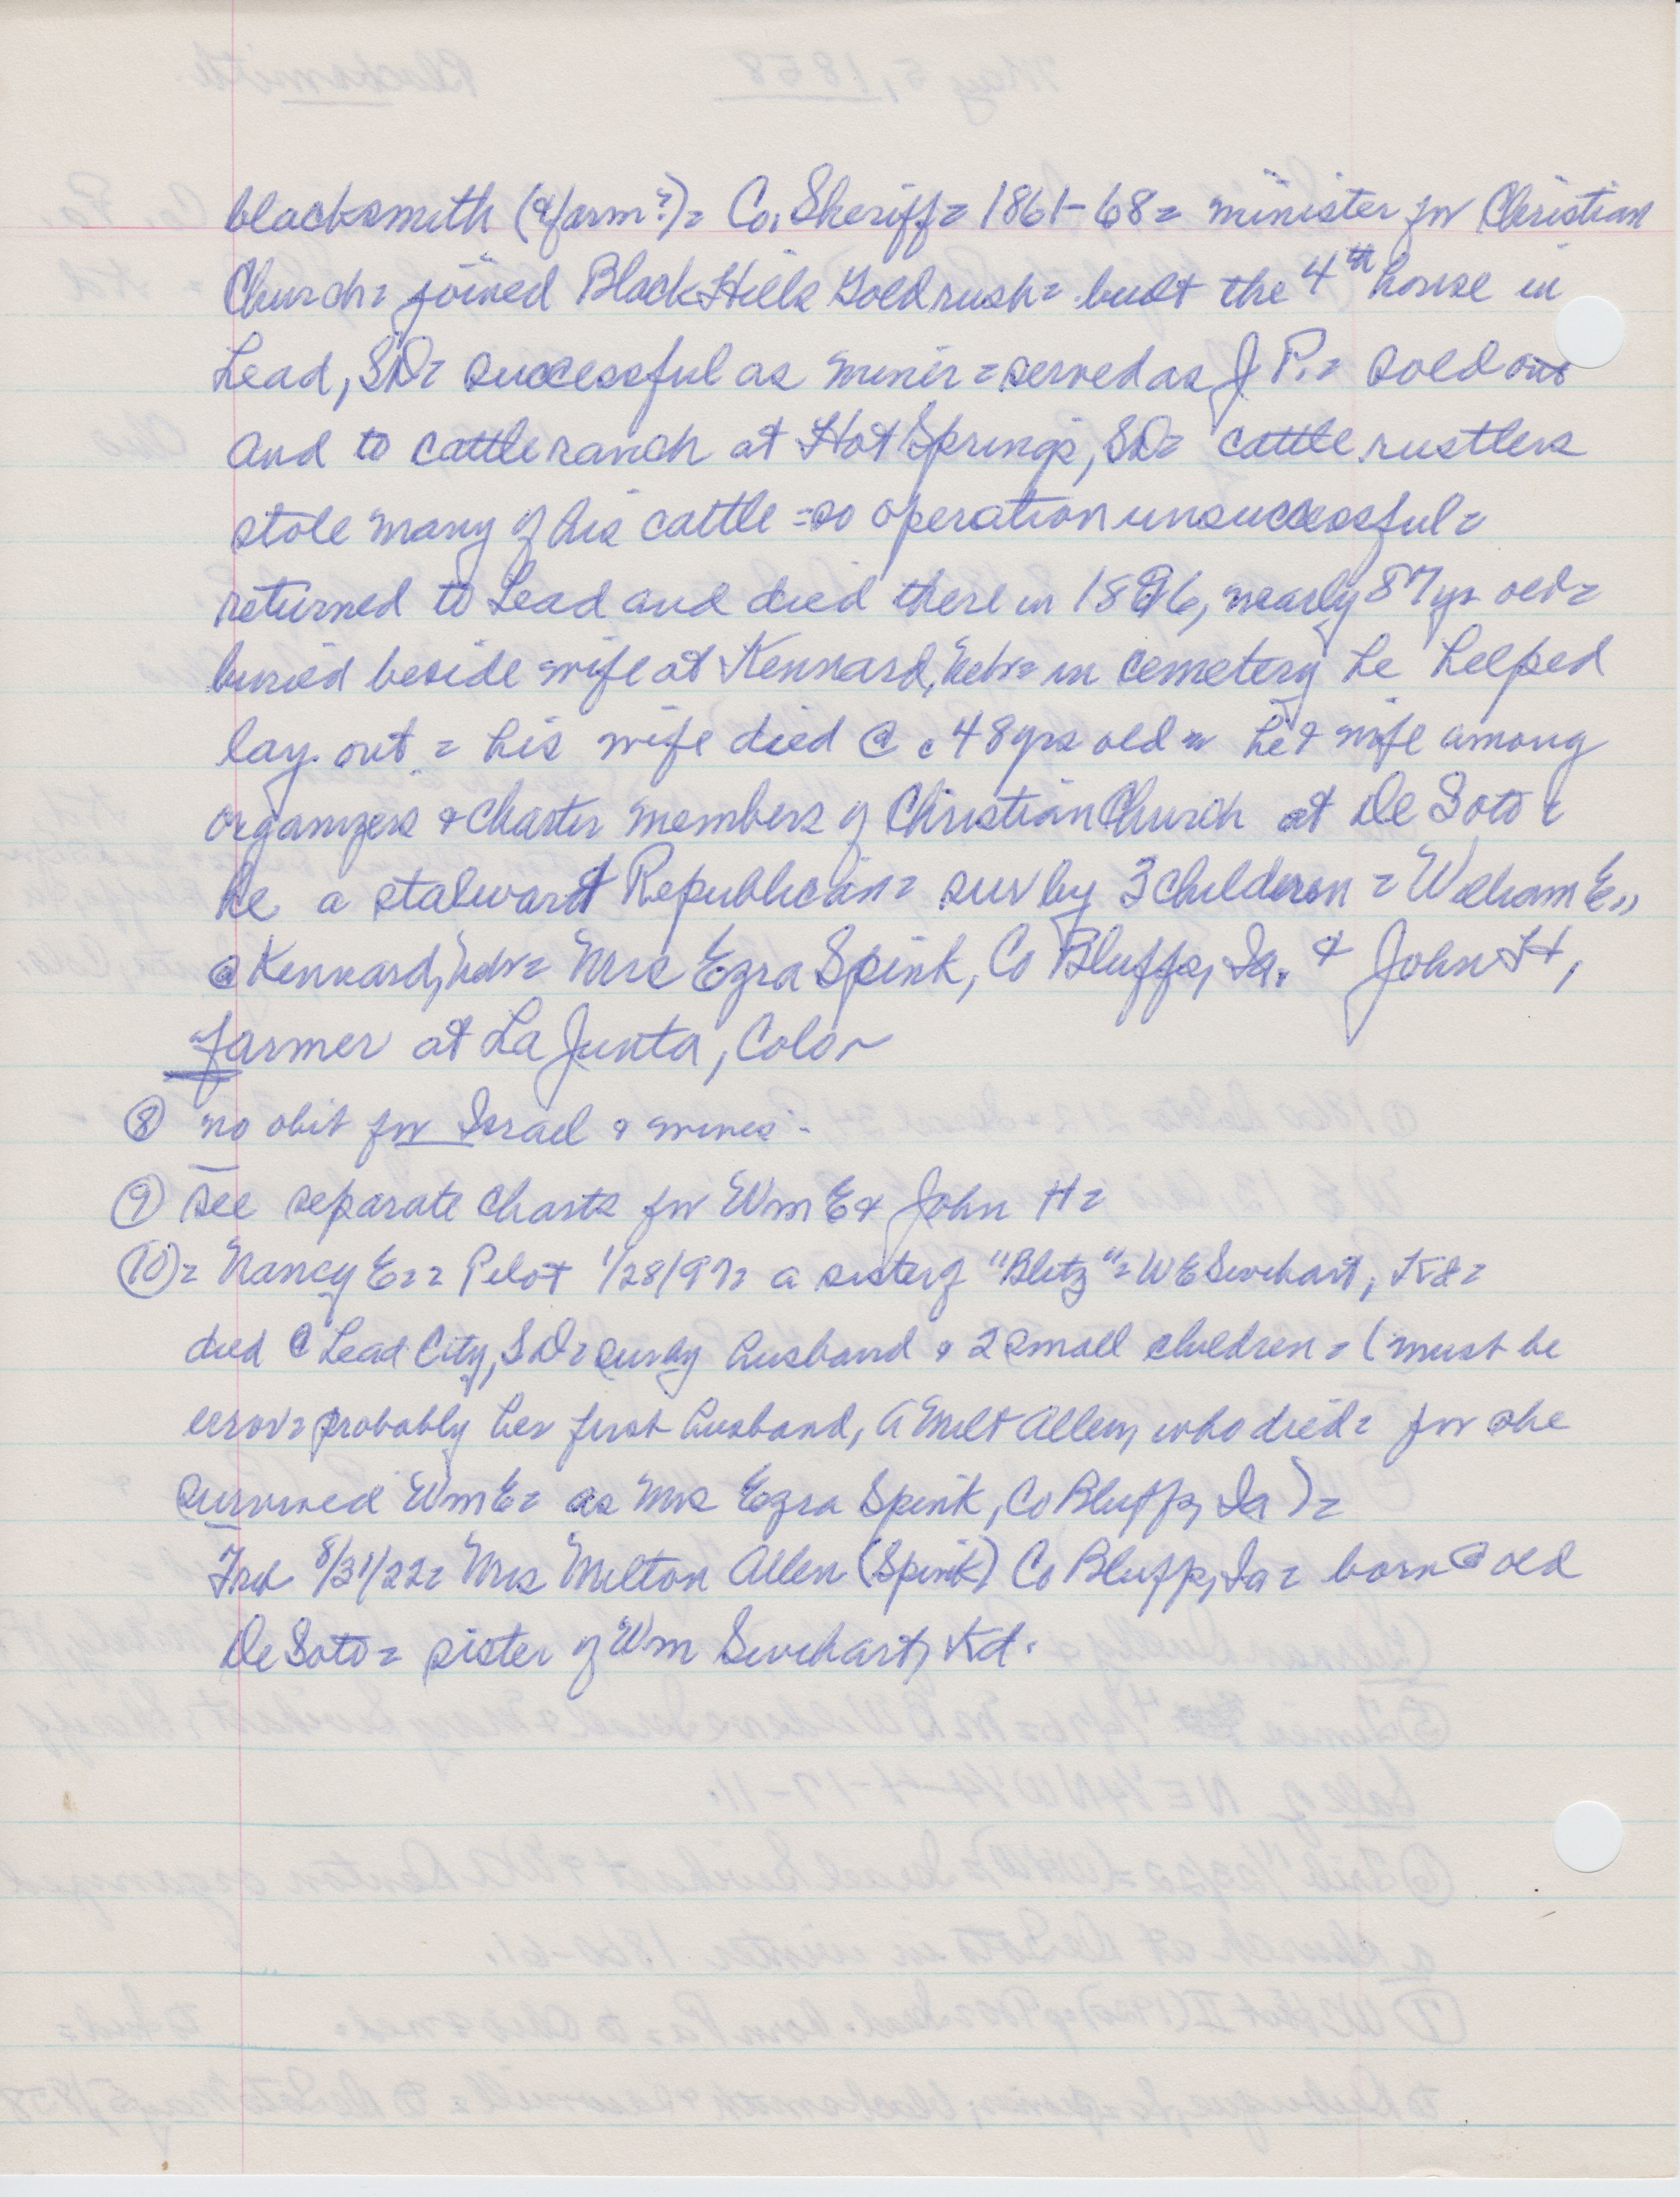 blacksmith (& farm?) = Co. Sheriff = 1861-68 = minister for Christian
Church = joined Black Hills Gold rush = built the 4th house in
Lead, SD = successful as miner = served as J.P. = sold out
and to cattle ranch at Hot Springs, SD = cattle rustlers
stole many of his cattle = so operation unsuccessful =
returned to Lead and died there in 1896, nearly 87 yrs old =
buried beside wife at Kennard, Nebr = in cemetery he helped
lay out = his wife died @ c 48 yrs old = he & wife among
organizers & charter members of Christian Church at De Soto &
he a stalwart Republican = sur by 3 children = William E.,
@ Kennard, Nebr = Mrs Ezra Spink, Co Bluffs, Ia. & John H,
farmer at La Junta, Colo
⑧ no obit for Israel &
⑨ see separate charts for Wm E & John H =
⑩ = Nancy E = = Pilot 1/28/97 = a sister of "Blitz" = W E Swihart, Kd =
died @ Lead City, SD = sur by husband & 2 small children = (must be
error = probably her first husband, A Milt Allen, who died = for she
survived Wm E = as Mrs Ezra Spink, Co Bluffs, Ia) =
Trib 8/31/22 = Mrs Milton Allen (Spink) Co Bluffs, Ia = born @ old
De Soto = sister of Wm Swihart, Kd.